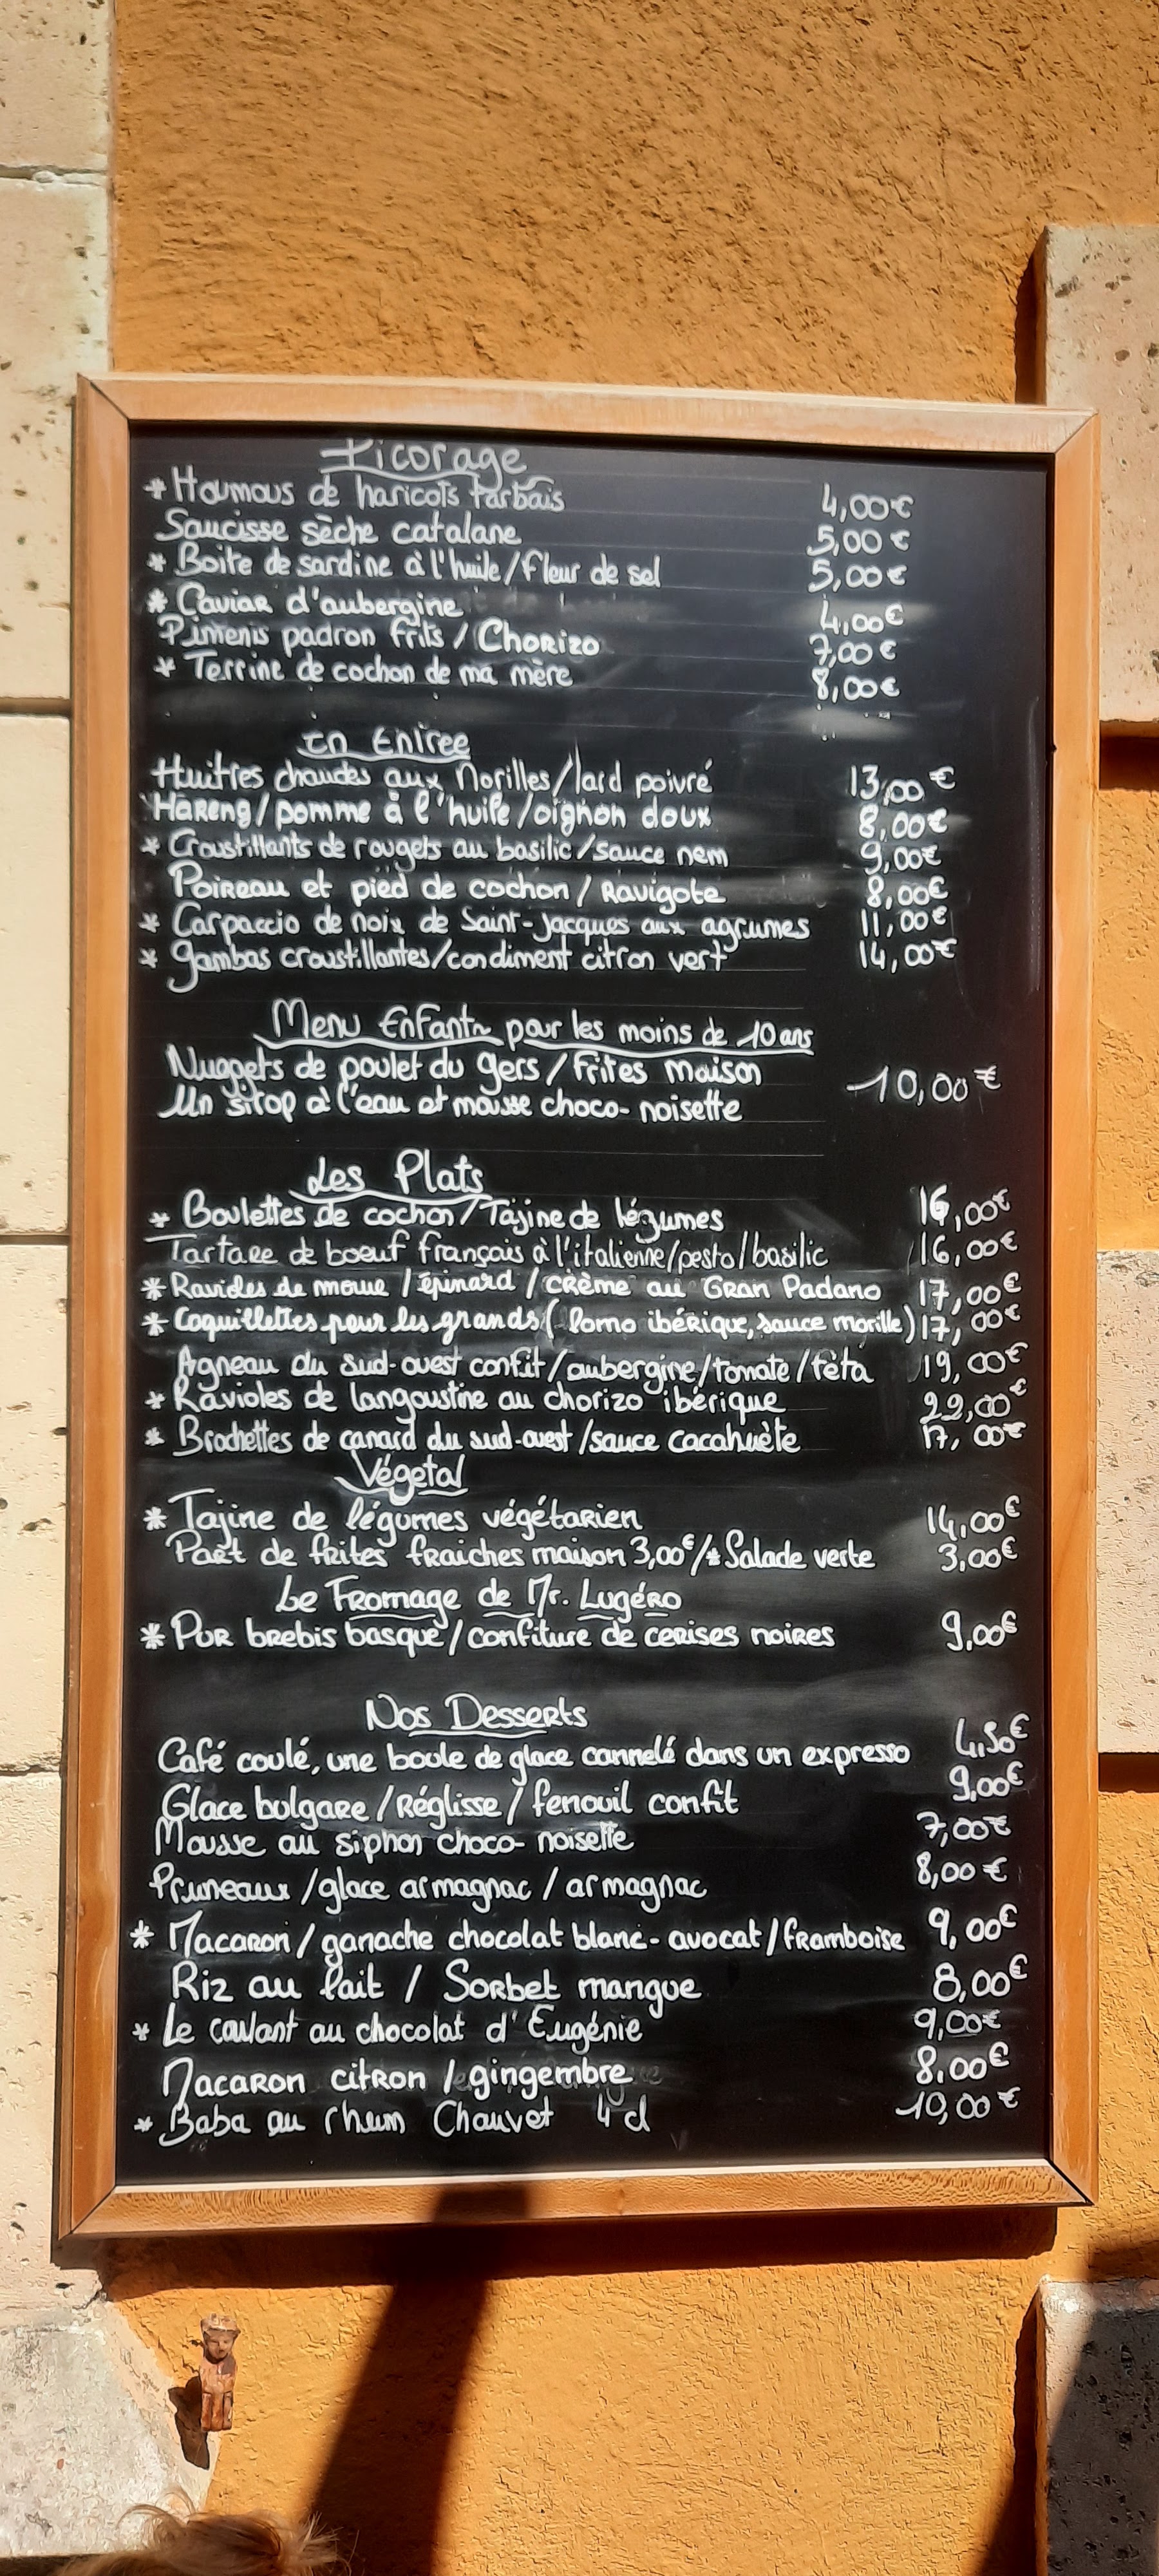 Picorage
* Houmous de haricots tarbais 4,00€
Saucisse sèche catalane 5,00€
* Boite de sardine à l'huile/fleur de sel 5,00€
* Caviar d'aubergine 4,00€
Pimenis padron frits / Chorizo 7,00€
* Terrine de cochon de ma mère 8,00€
En Entree
Huitres chaudes aux Morilles/lard poivré 13,00€
Hareng/pomme à l'huile/oignon doux 8,00€
* Croustillants de rougets au basilic/sauce nem 9,00€
Poireau et pied de cochon / Ravigote 8,00€
* Carpaccio de noix de Saint-Jacques aux agrumes 11,00€
* Gambas croustillantes/condiment citron vert 14,00€
Menu Enfant pour les moins de 10 ans
Nuggets de poulet du gers / Frites maison
Un sirop à l'eau et mousse choco-noisette 10,00€
Les Plats
* Boulettes de cochon/Tajine de légumes 16,00€
Tartare de boeuf français à l'italienne/pesto/basilic 16,00€
* Ravioles de morue / épinard / crème au Gran Padano 17,00€
* Coquillettes pour les grands (Lomo ibérique, sauce morille) 17,00€
Agneau du Sud-ouest confit/aubergine/tomate/féta 19,00€
* Ravioles de langoustine au chorizo ibérique 22,00€
* Brochettes de canard du sud-ouest/sauce cacahuète 17,00€
Végetal
* Tajine de légumes végétarien 14,00€
Part de frites fraiches maison 3,00€/* Salade verte 3,00€
Le Fromage de Mr. Lugéro
* Pur brebis basque/confiture de cerises noires 9,00€
Nos Desserts
Café coulé, une boule de glace cannelé dans un expresso 4,50€
Glace bulgare / Réglisse / fenouil confit 9,00€
Mousse au siphon choco-noisette 7,00€
Pruneaux /glace armagnac / armagnac 8,00€
* Macaron / ganache chocolat blanc-avocat/framboise 9,00€
Riz au lait / Sorbet mangue 8,00€
* Le coulant au chocolat d'Eugénie 9,00€
Macaron citron /gingembre 8.00€
* Baba au rhum Chauvet 4 cl 10,00€